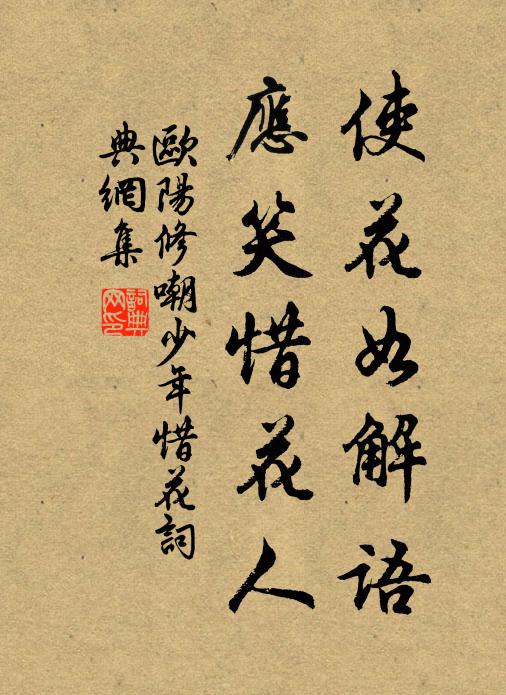 使花如解語
應笑惜花人
歐陽修嘲少年惜花詞
典網集
詞典
网印